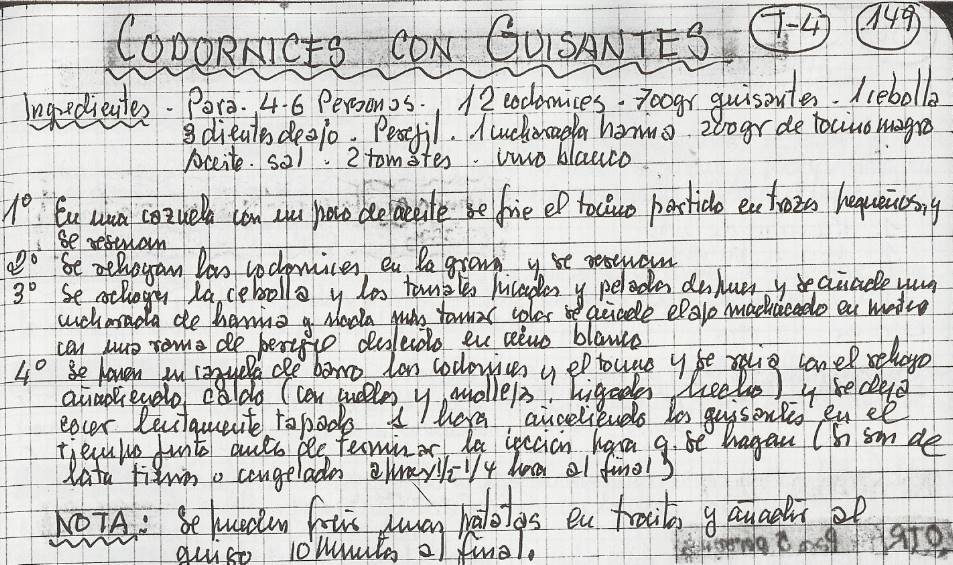 CODORNICES CON GUISANTES T-4 149
Ingredientes - Para - 4-6 Personas. 12 codornices - 700gr guisantes - 1 cebolla
3 dientes de ajo - Perejil - 1 cucharada harina - 200gr de tocino magro
Aceite - sal - 2 tomates - vino blanco
1º En una cazuela con un poco de aceite se frie el tocino partido en trozos pequeños, y
se reservan
2º Se rehogan las codornices en la grasa y se reservan
3º Se rehoga la cebolla y los tomates picados y pelados despues y se añade una
cucharada de harina y nada mas tomar color se añade el ajo machacado en
con una rama de perejil desleido en vino blanco
4º Se ponen en cazuela de barro las codornices y el tocino y se rocia con el rehogo
añadiendo caldo (con cuellos y mollejas, higados hecho) y se deja
cocer lentamente tapado 1 hora añadiendo los guisantes en el
tiempo justo antes de terminar la cocción para q. se hagan (Si son de
lata tiernos o congelados 1/2 - 1/4 hora al final)
NOTA: Se pueden freir unas patatas en trocitos y añadir al
guiso 10 minutos al final.